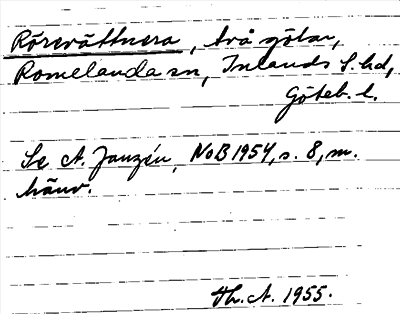 Rörevättnera, två götar,
Romelanda sn, Inlands S. hd,
Göteb. l.
Se A. Janzén, NoB 1954, s. 8, m.
hänv.
Th. A. 1955.